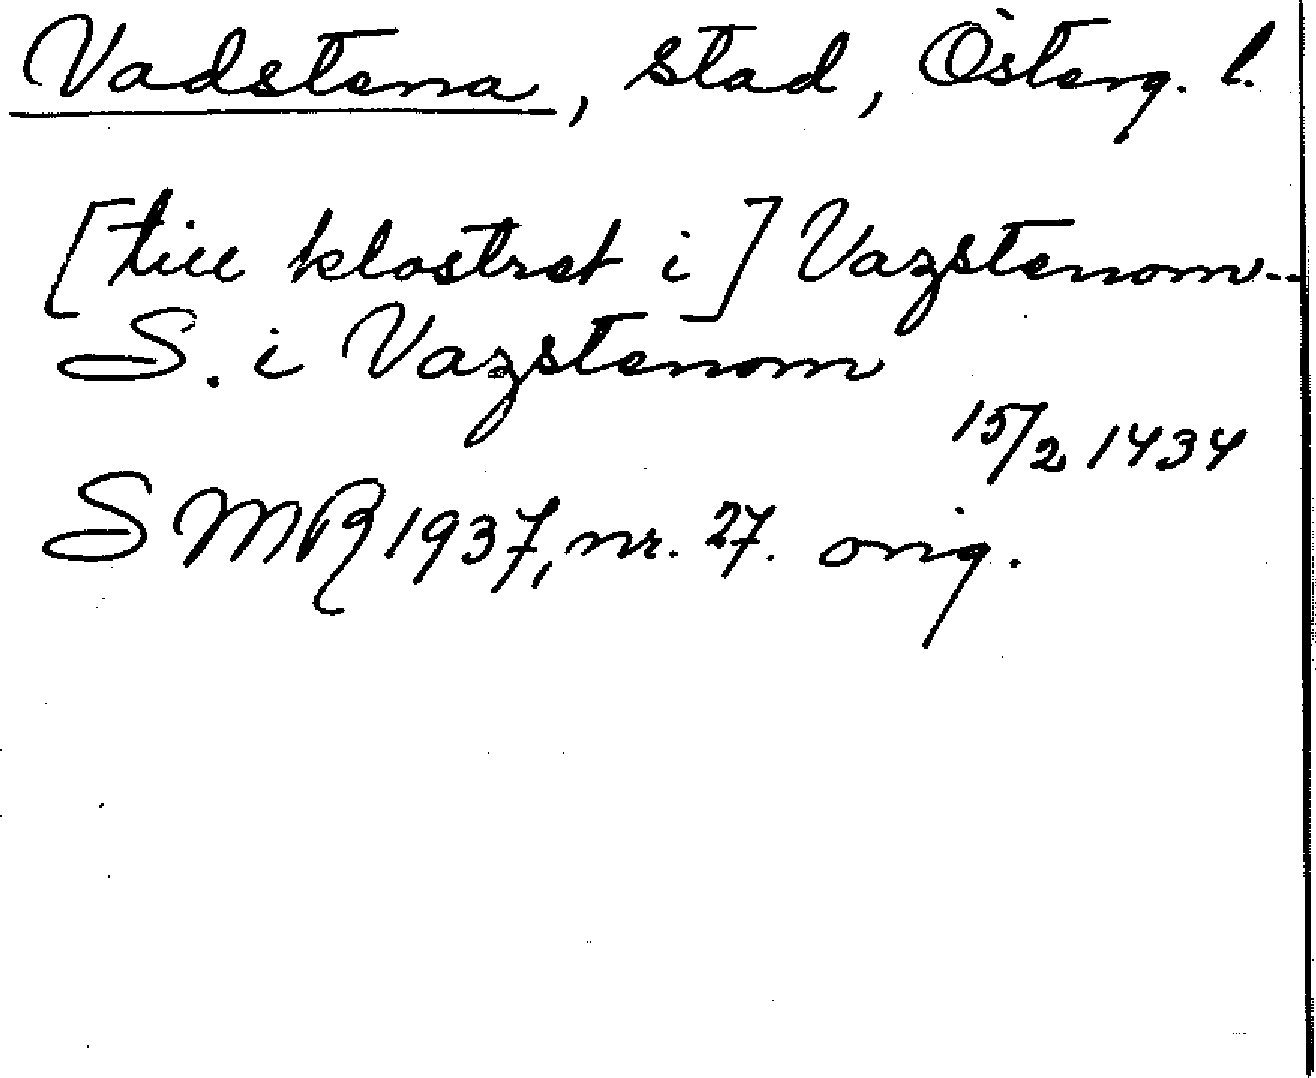 Vadstena, stad, Österg. l.
[till klostret i] Vazstenom--
S. i Vazstenom
15/2 1434
SMR 1937, nr. 27. orig.